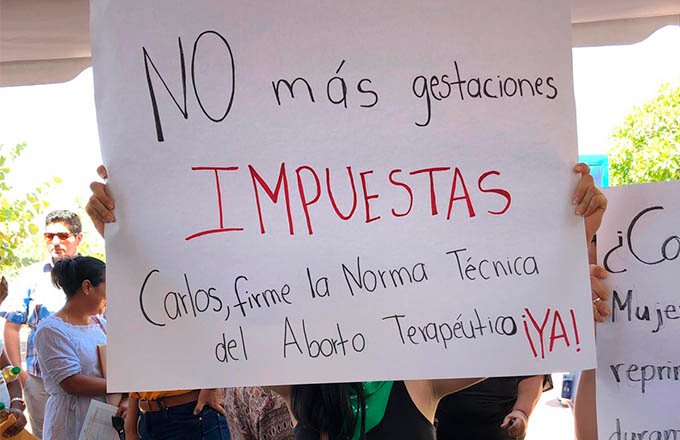 NO más gestaciones
IMPUESTAS
Carlos, firme la Norma Técnica
del Aborto Terapéutico ¡YA!
¿Co
Mujer
repri
duran